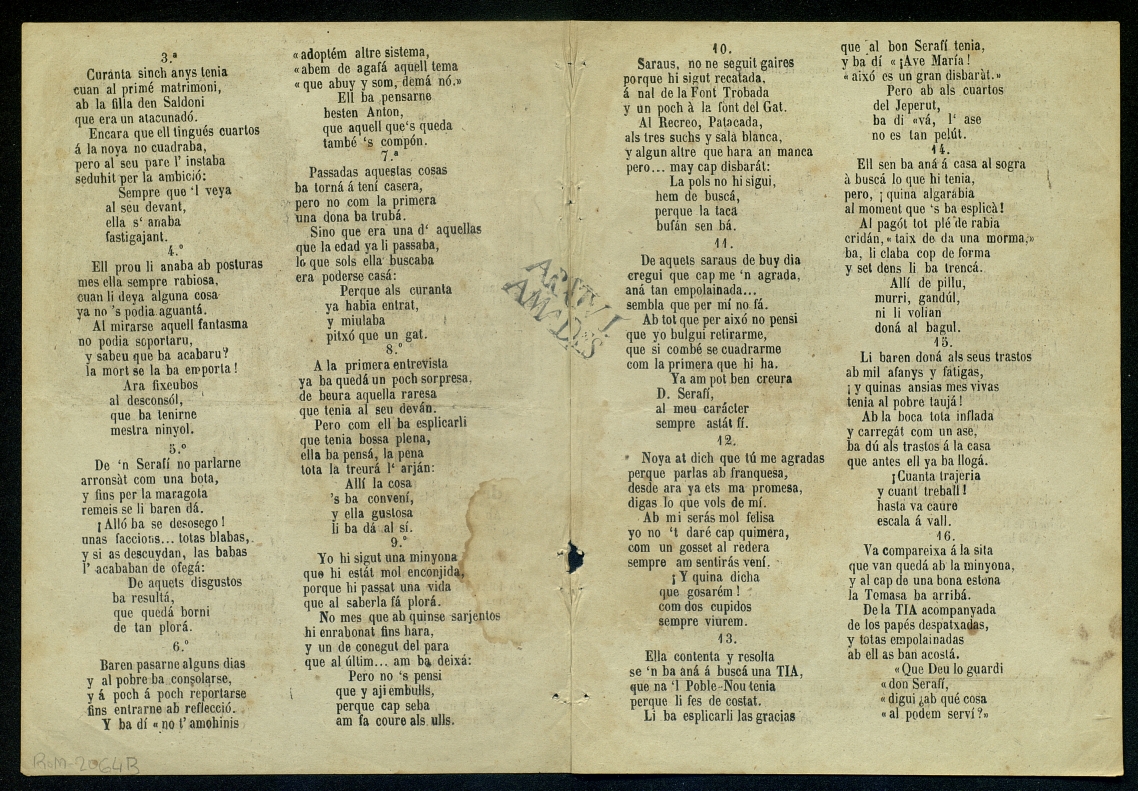 3.ª
Curánta sinch anys tenia
cuan al primé matrimoni,
ab la filla den Saldoni
que era un atacunadó.
Encara que ell tingués cuartos
á la noya no cuadraba,
pero al seu pare l' instaba
seduhit per la ambició:
Sempre que 'l veya
al seu devant,
ella s' anaba
fastigajant.
4.º
Ell prou li anaba ab posturas
mes ella sempre rabiosa,
cuan li deya alguna cosa
ya no 's podia aguantá.
Al mirarse aquell fantasma
no podia soportaru,
y sabeu que ba acabaru?
la mort se la ba emporta!
Ara fixeubos
al desconsól,
que ba tenirne
mestra ninyol.
5.º
De 'n Serafí no parlarne
arronsàt com una bota,
y fins per la maragota
remeis se li baren dá.
¡Alló ba se desosego!
unas faccions... totas blabas,
y si as descuydan, las babas
l' acababan de ofegá:
De aquets disgustos
ba resultá,
que quedá borni
de tan plorá.
6.º
Baren pasarne alguns dias
y al pobre ba consolarse,
y á poch á poch reportarse
fins entrarne ab reflecció.
Y ba dí «no t' amohinis
«adoptém altre sistema,
«abem de agafá aquell tema
«que abuy y som, demá nó.»
Ell ba pensarne
besten Anton,
que aquell que's queda
també 's compón.
7.ª
Passadas aquestas cosas
ba torná á tení casera,
pero no com la primera
una dona ba trubá.
Sino que era una d' aquellas
que la edad ya li passaba,
lo que sols ella buscaba
era poderse casá:
Perque als curanta
ya habia entrat,
y miulaba
pitxó que un gat.
8.º
A la primera entrevista
ya ba quedá un poch sorpresa,
de beura aquella raresa
que tenia al seu deván.
Pero com ell ba esplicarli
que tenia bossa plena,
ella ba pensá, la pena
tota la treurá l' arján:
Allí la cosa
's ba convení,
y ella gustosa
li ba dá al sí.
9.º
Yo hi sigut una minyona
que hi estát mol enconjida,
porque hi passat una vida
que al saberla fá plorá.
No mes que ab quinse sarjentos
hi enrabonat fins hara,
y un de conegut del para
que al últim... am ba deixá:
Pero no 's pensi
que y aji embulls,
perque cap seba
am fa coure als ulls.
10.
Saraus, no ne seguit gaires
porque hi sigut recatada,
á nal de la Font Trobada
y un poch à la font del Gat.
Al Recreo, Patacada,
als tres suchs y sala blanca,
y algun altre que hara an manca
pero... may cap disbarát:
La pols no hi sigui,
hem de buscá,
perque la taca
bufán sen bá.
11.
De aquets saraus de buy dia
cregui que cap me 'n agrada,
aná tan empolainada...
sembla que per mí no fá.
Ab tot que per aixó no pensi
que yo bulgui retirarme,
que si combé se cuadrarme
com la primera que hi ha.
Ya am pot ben creura
D. Serafí,
al meu carácter
sempre astát fí.
12.
Noya at dich que tú me agradas
perque parlas ab franquesa,
desde ara ya ets ma promesa,
digas lo que vols de mí.
Ab mi serás mol felisa
yo no 't daré cap quimera,
com un gosset al redera
sempre am sentirás vení.
¡Y quina dicha
que gosarém!
com dos cupidos
sempre viurem.
13.
Ella contenta y resolta
se 'n ba aná á buscá una TIA,
que na 'l Poble-Nou tenia
perque li fes de costat.
Li ba esplicarli las gracias
que al bon Serafí tenia,
y ba dí «¡Ave María!
«aixó es un gran disbaràt.»
Pero ab als cuartos
del Jeperut,
ba di «vá, l' ase
no es tan pelút.
14.
Ell sen ba aná á casa al sogra
à buscá lo que hi tenia,
pero, ¡quina algarábia
al moment que 's ba esplicà!
Al pagót tot plé de rabia
cridán, «taix de da una morma,»
ba, li claba cop de forma
y set dens li ba trencá.
Allí de pillu,
murri, gandúl,
ni li volian
doná al bagul.
15.
Li baren doná als seus trastos
ab mil afanys y fatigas,
¡y quinas ansias mes vivas
tenia al pobre taujá!
Ab la boca tota inflada
y carregát com un ase,
ba dú als trastos á la casa
que antes ell ya ba llogá.
¡Cuanta trajeria
y cuant treball!
hasta va caure
escala á vall.
16.
Va compareixa á la sita
que van quedá ab la minyona,
y al cap de una bona estona
la Tomasa ba arribá.
De la TIA acompanyada
de los papés despatxadas,
y totas empolainadas
ab ell as ban acostá.
«Que Deu lo guardi
«don Serafí,
«digui ¿ab qué cosa
«al podem serví?»
ARXIU
AMADES
ROM-2064B